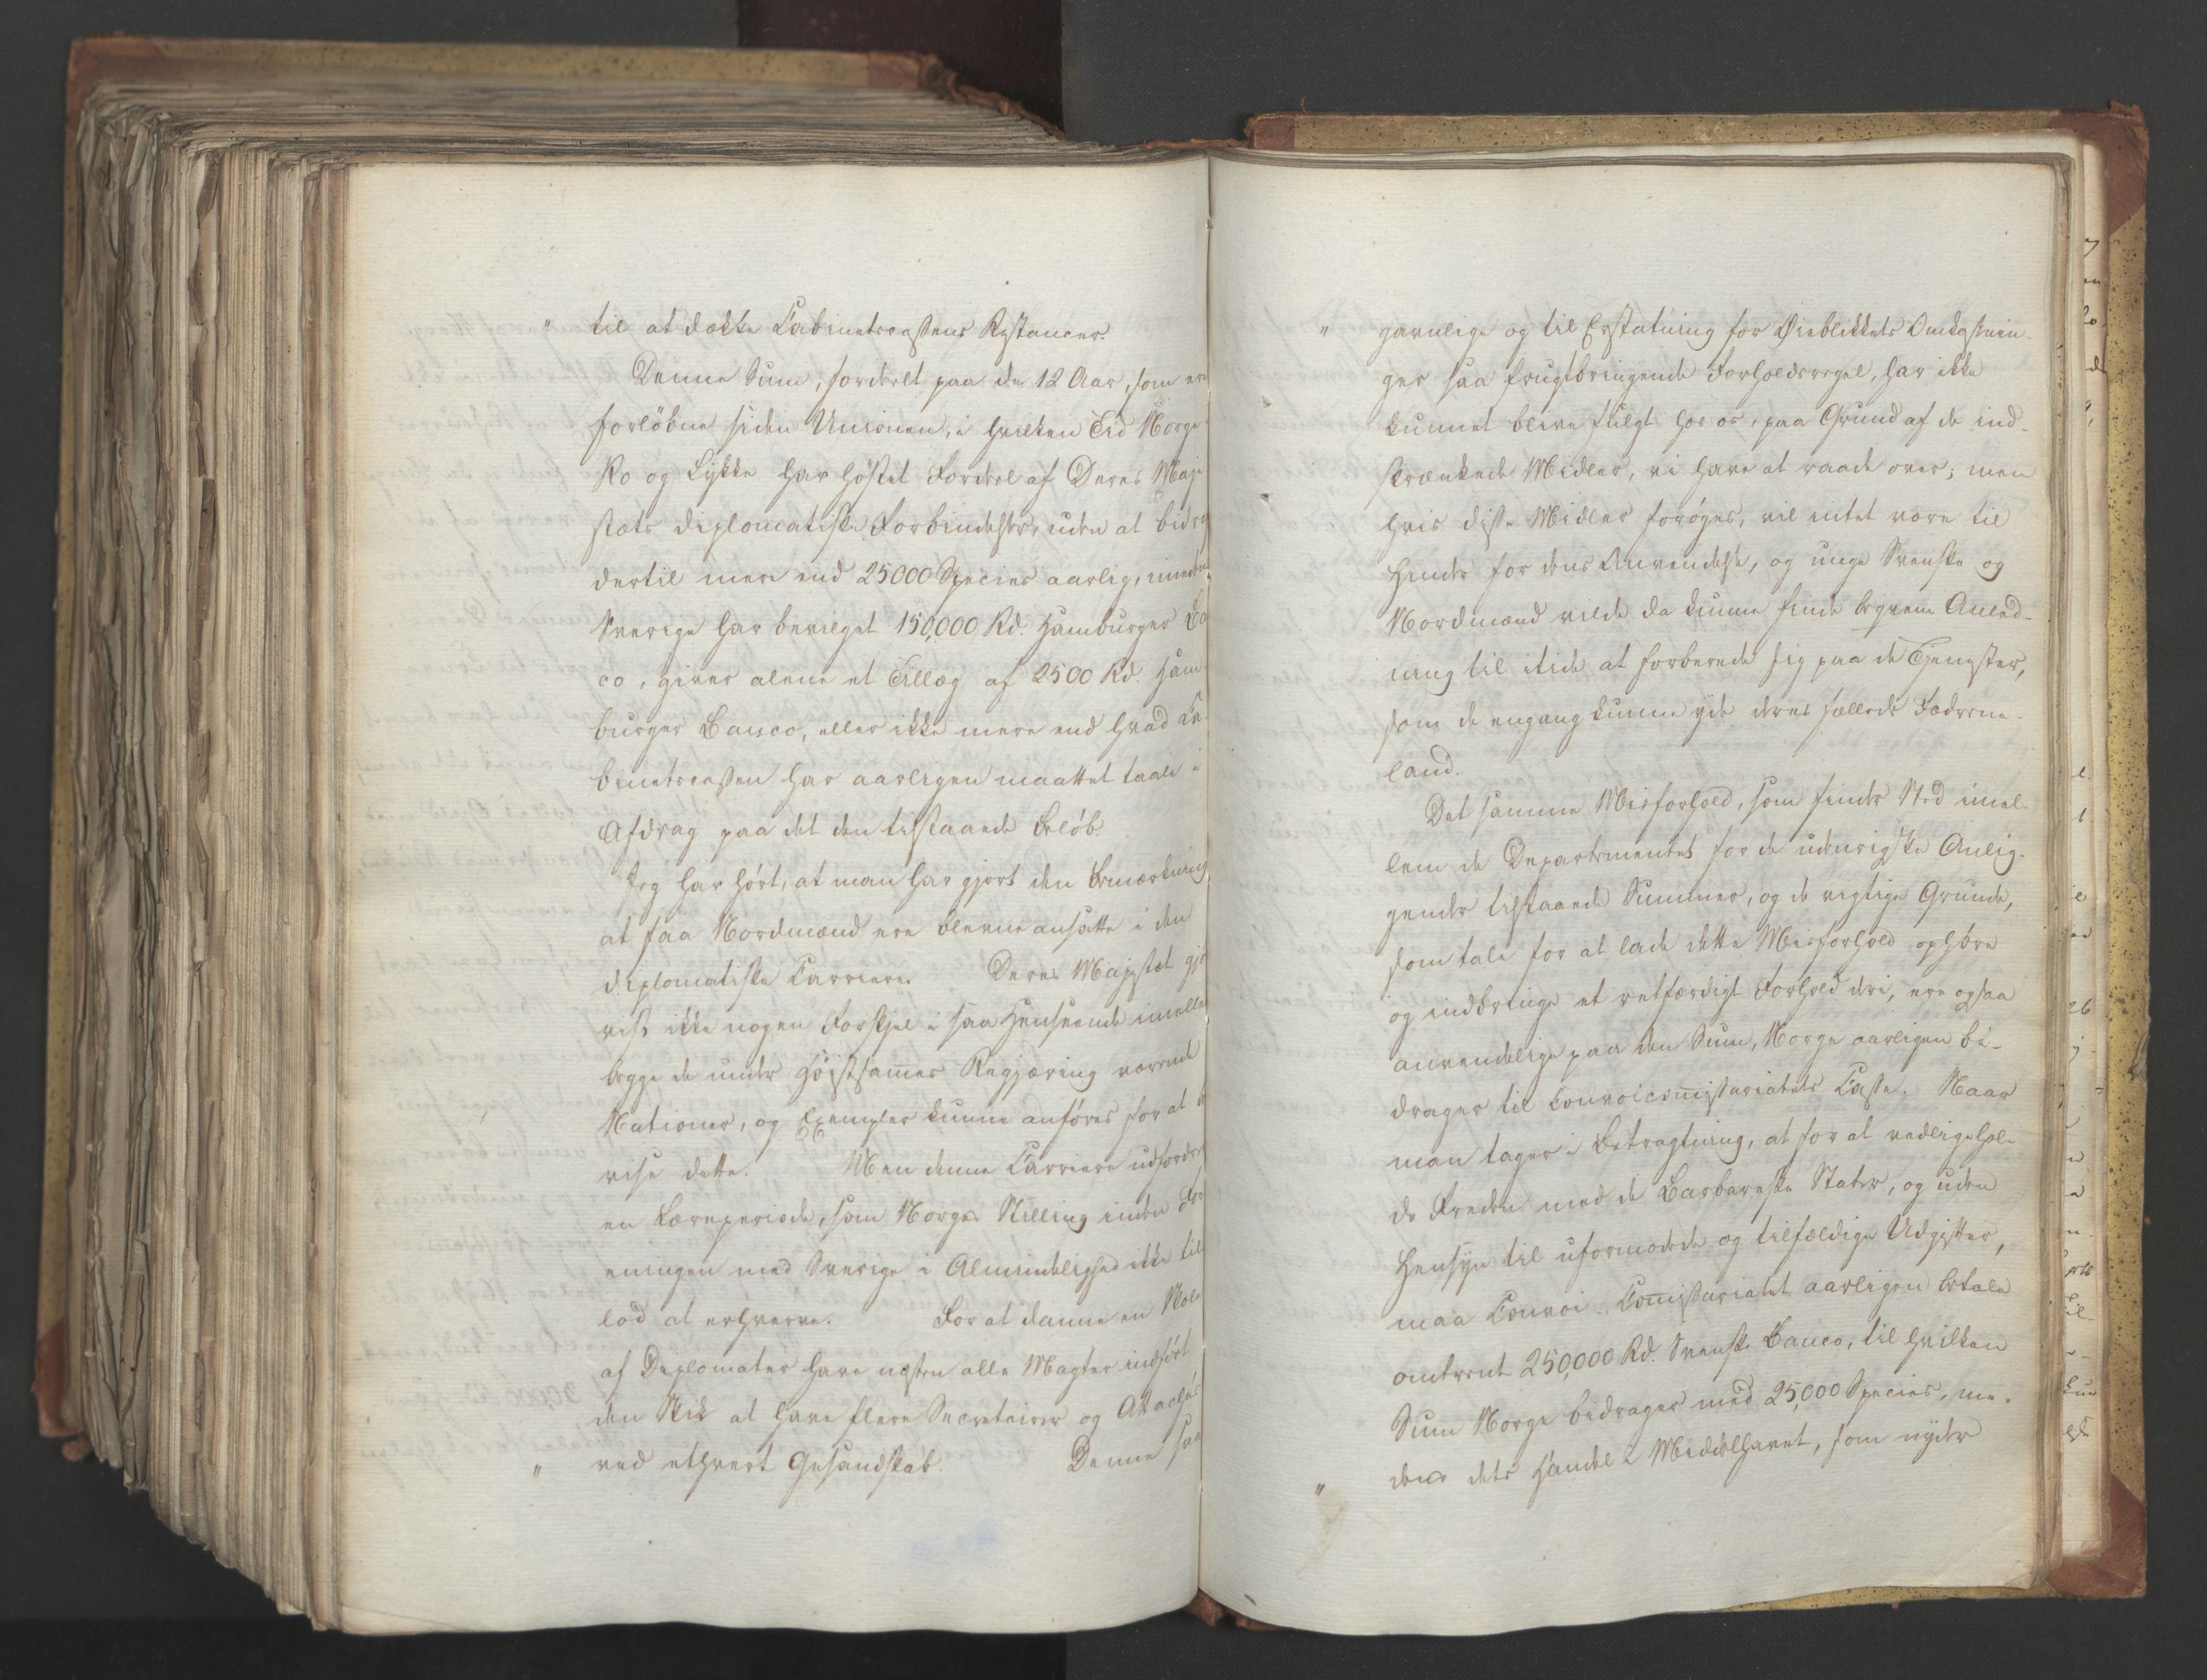 " til at dække Cabinetscassens Restancer.
Denne Sum, fordeelt paa de 12 Aar, som ere
forløbne siden Unionen, i hvilken Tid Norges
Ro og Lykke har høstet Fordeel af Deres Maje
stæts diplomatiske Forbindelser, uden at bidrag
dertil mere end 25000 Species aarlig, imeden
Sverige har bevilget 150,000 Rd. Hamburger Ba
co, giver alene et Tillæg af 2500 Rd. Ham-
burger Banco, eller ikke mere end hvad Ca-
binetscassen har aarligen maattet taale i
Afdrag paa det den tilstaaede Beløb.
Jeg har hørt, at man har gjort den Bemærkning
at faa Nordmænd ere blevne ansatte i den
diplomatiske Carriere. Deres Majestæt gjør
vist ikke nogen Forskjel i saa Henseende imelle
begge de under Høistsammes Regjæring værende
Nationer, og Exempler kunne anføres for at be
vise dette. Men denne Carriere udfordrer
en Læreperiode, som Norges Stilling inden For
eningen med Sverige i Almindelighed ikke til
lod at erhverve. For at danne en Skole
af Diplomater have næsten alle Magter indført
den Skik at have flere Secretairer og Attachés
" ved ethvert Gesandskab. Denne saa
" gavnlige og til Erstatning for Øieblikkets Omkostnin-
ger saa frugtbringende Forholdsregel, har ikke
kunnet blive fulgt hos os, paa Grund af de ind-
skrænkede Midler, vi have at raade over; men
hvis disse Midler forøges, vil intet være til
Hinder for dens Anvendelse, og unge Svenske og
Nordmænd vilde da kunne finde beqvem Anled-
ning til itide at forberede sig paa de Tjenester,
som de engang kunne yde deres fælleds Fædrene-
land.
Det samme Misforhold, som finder Sted imel-
lem de Departementet for de udenrigske Anlig-
gender tilstaaede Summer, og de vigtige Grunde,
som tale for at lade dette Misforhold ophøre
og indbringe et retfærdigt Forhold deri, ere ogsaa
anvendelige paa den Sum, Norge aarligen bi-
drager til Convoicommissariatets Casse. Naar
man tager i Betragtning, at for at vedligehol-
de Freden med de Barbareske Stater, og uden
Hensyn til uformodede og tilfældige Udgifter,
maa Convoi-Commissariatet aarligen betale
omtrent 250,000 Rd. Svensk Banco, til hvilken
Sum Norge bidrager med 25,000 Species, me-
" dens dets Handel i Middelhavet, som nyder